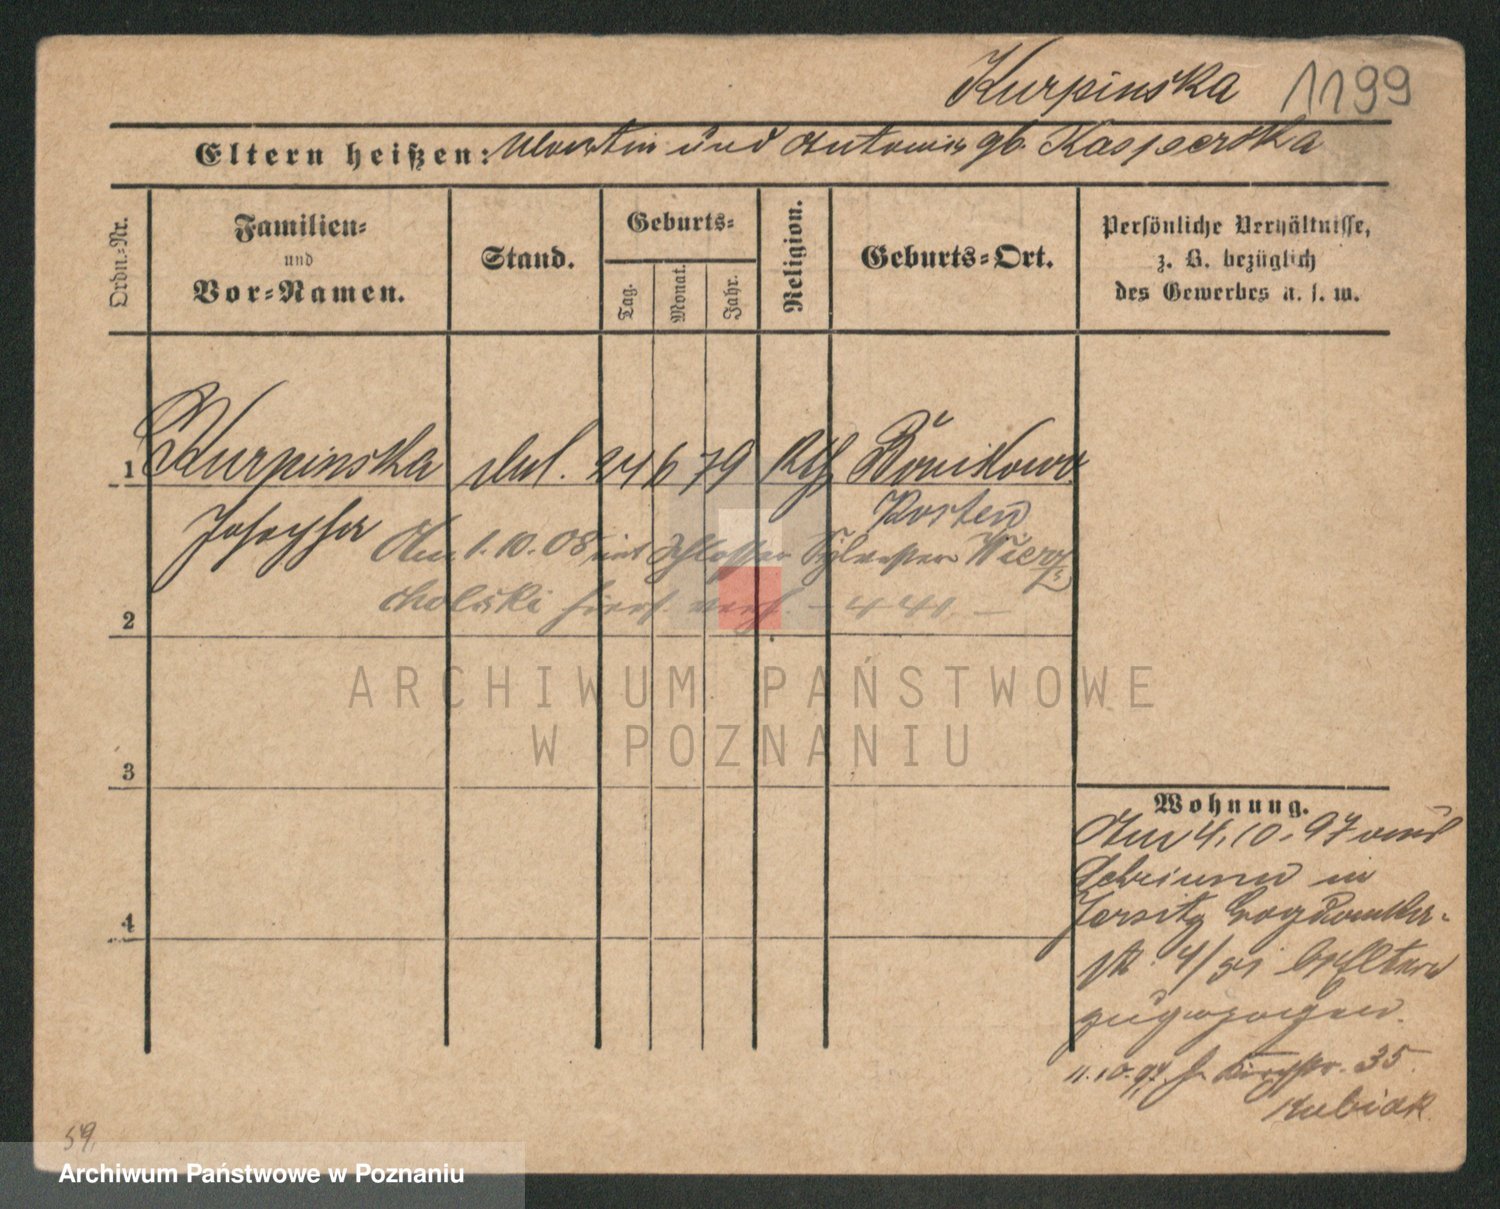 Kurpinska 1199
Eltern heißen: Martin und Antonie gb. Kasperska
Ordn.-Nr.
Familien-
und
Vor-Namen.
Stand.
Geburts-
Tag.
Monat.
Jahr.
Religion.
Geburts-Ort.
Persönliche Verhältnisse,
z. B. bezüglich
des Gewerbes u. s. w.
1 Kurpinska 24 6 79 Kth Bonikowo
Josepha Kosten
Am 1.10.08 mit Schlosser Sylvester Wierz-
cholski hier verh.
2
3
4
ARCHIWUM PAŃSTWOWE
W POZNANIU
Wohnung.
Am 4.10.97 aus
in
Jersitz
4/ Eltern
zugezogen.
11.10.97 35
Kubiak
59.
Archiwum Państwowe w Poznaniu